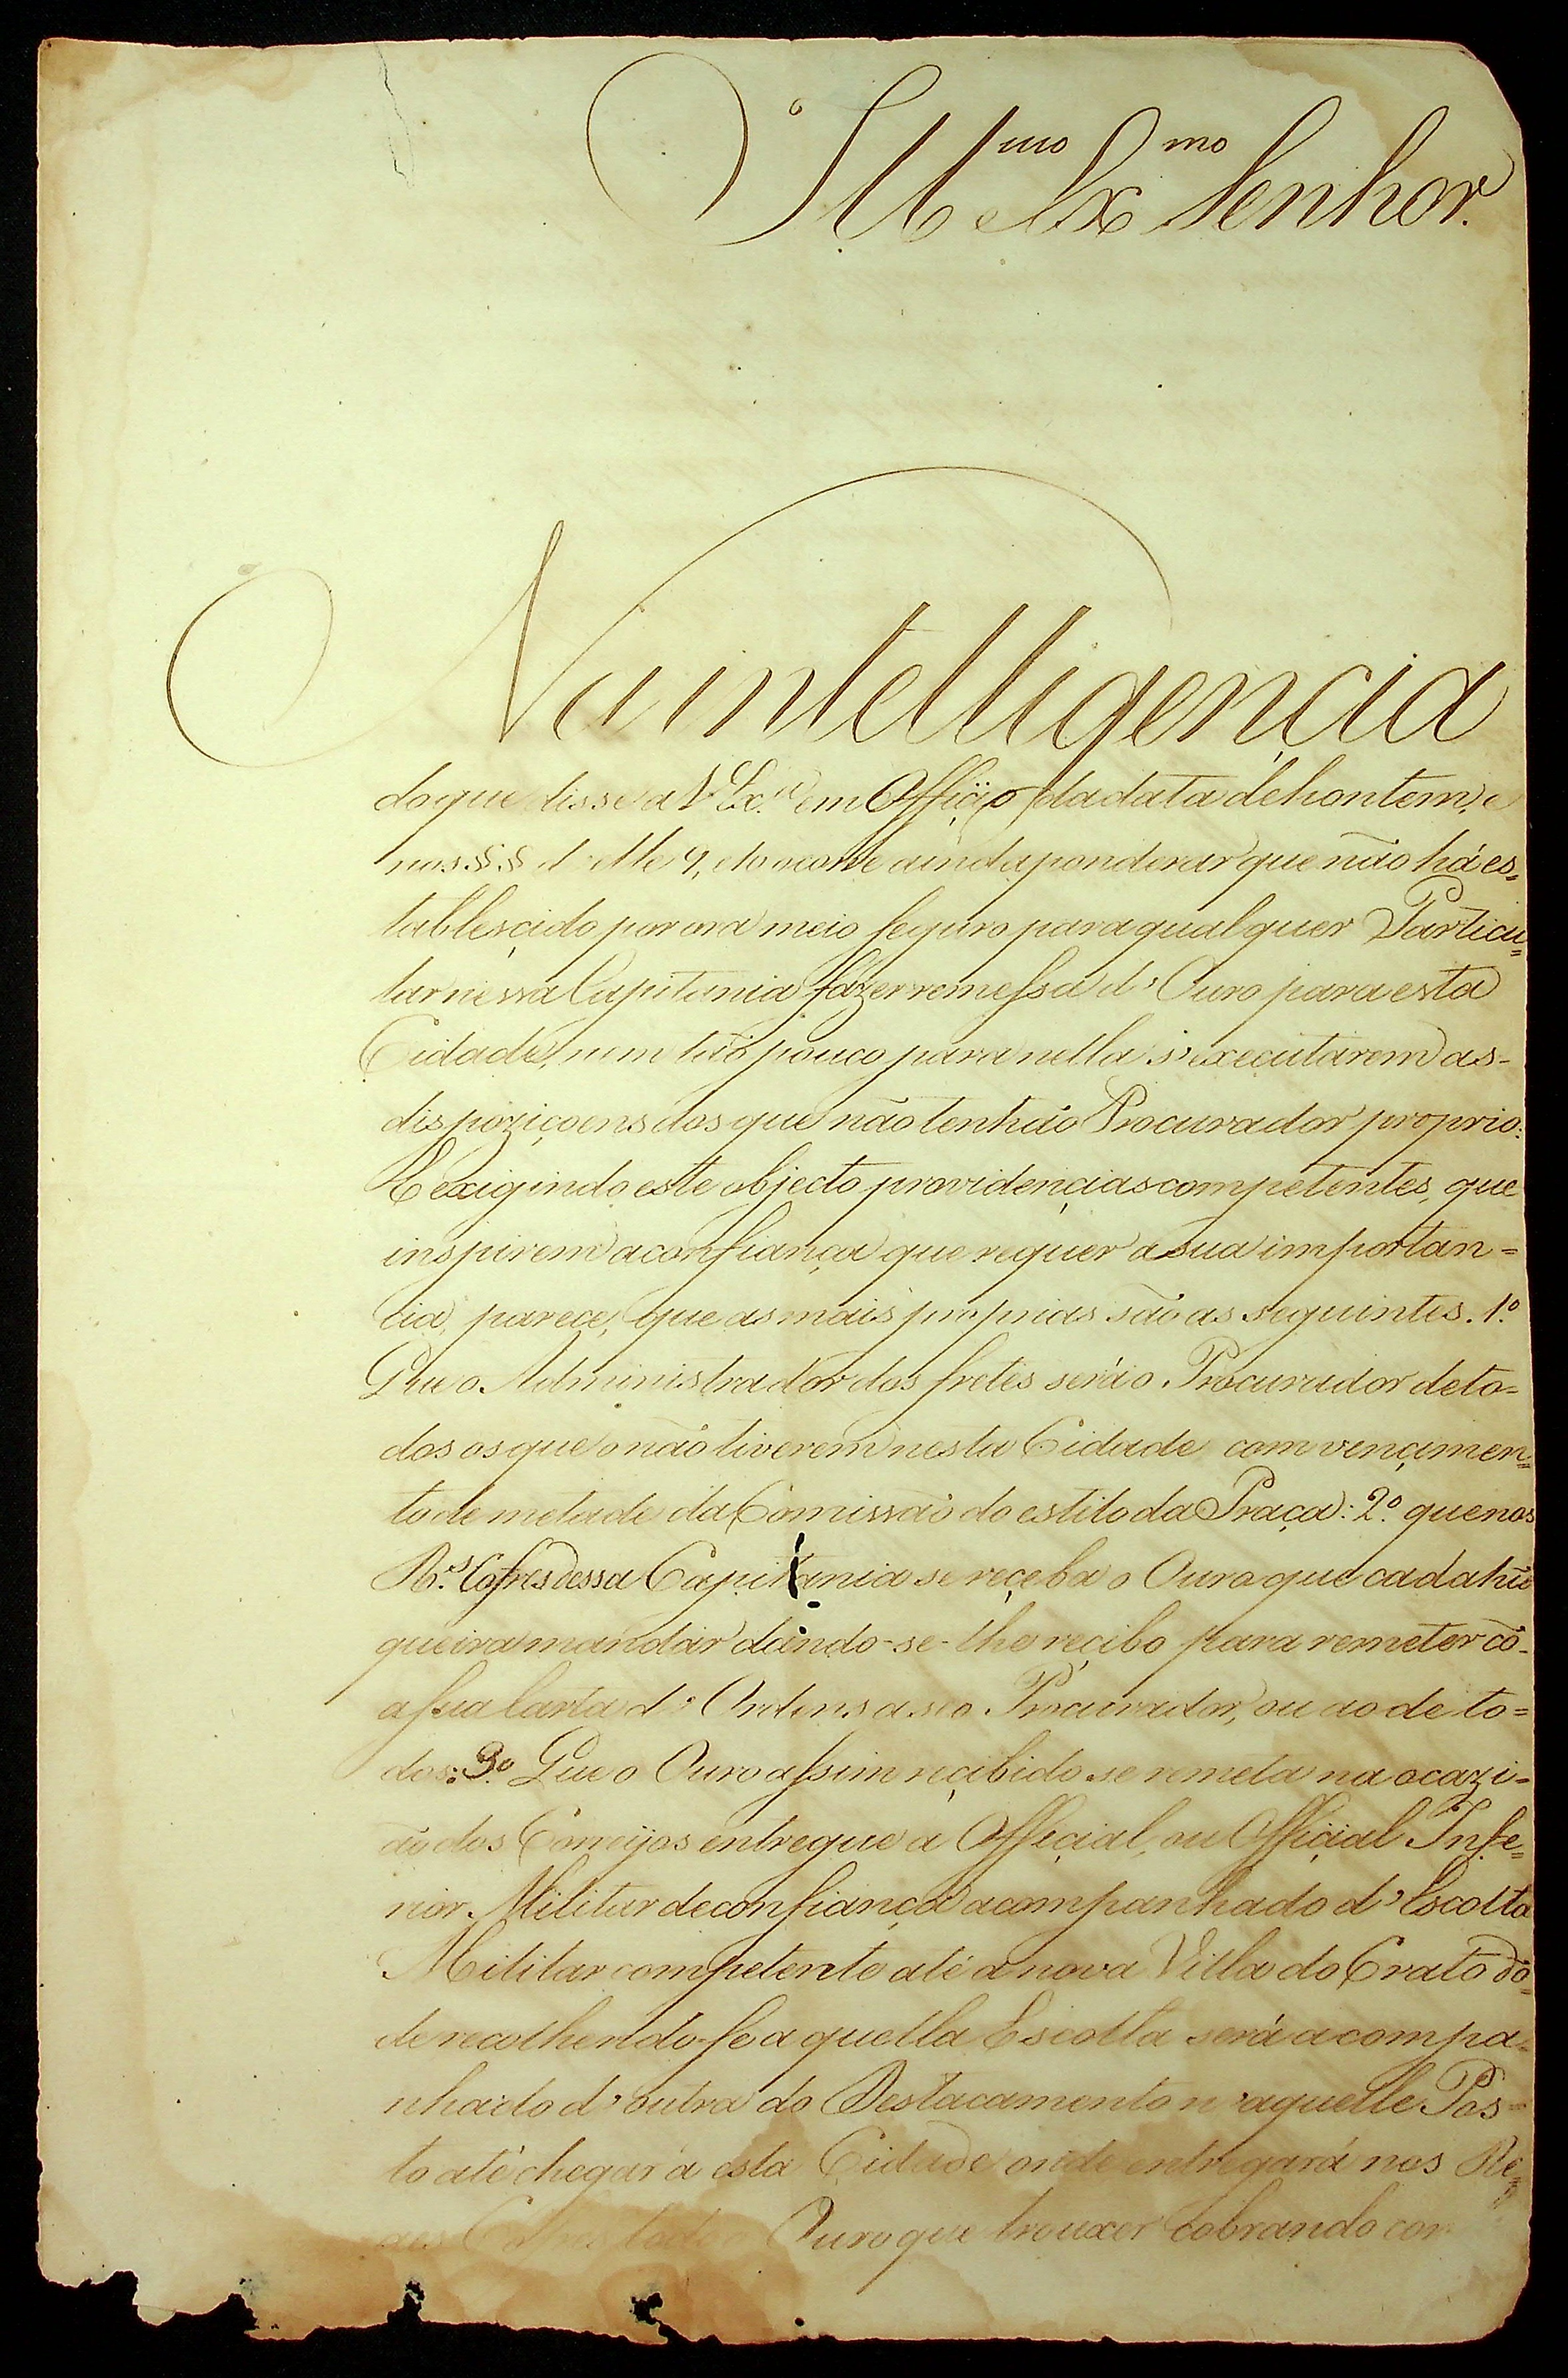 Ill.mo e Ex.mo Senhor.
Na intelligencia
do que disse a V. Ex.ª em Officio da data de hontem, e
nos §.§ d'elle 9, e 10 ocorre ainda ponderar que não há es=
tablesçido por ora meio seguro para qualquer Particu=
lar nessa Capitania fazer remessa d'Ouro para esta
Cidade, nem tão pouco para nella s'executarem as-
dispoziçoens dos que não tenhão Procurador proprio:
E exigindo este objecto providençias competentes, que
inspirem a confiança que requer a sua importan=
cia, parece, que as mais proprias são as seguintes. 1.º
Que o Administrador dos fretes será o Procurador de to=
dos os que o não tiverem nesta Cidade com vençimen=
to de metade da Comissão do estilo da Praça: 2.º que nos
R.s Cofres dessa Capitania se reçeba o Ouro que cada hũ
queira mandar dando-se-lhe reçibo para remeter cõ-
a sua Carta d'Ordens a seo Procurador, ou ao de to=
dos: 3.º Que o Ouro assim reçibido se remeta na ocazi=
ão dos Correyos entregue a Offiçial, ou Offiçial Infe=
rior Militar de confiança acompanhado d'Escolta
Militar competente até a nova Villa do Crato dõ=
de recolhendo-se aquella Escolta será acompa=
nhado d'outra do Destacamento n'aquelle Pos=
to até chegar a esta Cidade onde entregará nos Re=
aes Ouro que trouxer cobrando